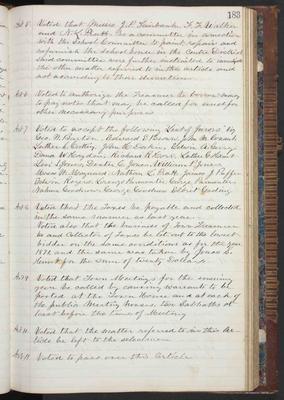 183
Art 5. Voted that Messrs J. P. Fairbank, F. F. Walker
and N. L. Pratt be a committee in connection
with the School Committee to paint repair and
refurnish the school house in the Centre District
Said committee were further instructed to consider
the other matter referred to in this article and
act according to their discretion
Art 6 Voted to authorize the Treasurer to borrow money
to pay notes that may be called for and for
other necessary purposes
Art 7 Voted to accept the following List of Jurors by
Geo. N. Edward P. Brown, John M.
Luther L. John Edwin A.
Dana W. Richard R. Luther C.
Levi Jones, E. Jones, William
Moses H. Maynard, Nathan L. Pratt, James J. Puffer
Edwin Rogers, George Parmenter, George Parmenter
Nahum Goodnow George Goodnow
Art 8 Voted that the Taxes be payable and collected
in the same manner as last year.
Voted also that the business of Town Treasurer
and Collector of Taxes be let out to the lowest
bidder on the same conditions as for the year
1871 and the same was taken by Jonas S.
Hunt for the sum of twenty Dollars
Art 9 Voted that Town Meetings for the ensuing
year be called by causing warrants to be
posted at the Town House and at each of
the public Meeting houses two Sabbaths at
least before the time of Meeting
Art 10 Voted that the matter referred to in this Ar-
ticle be left to the selectmen
Art 11 Voted to pass over this Article